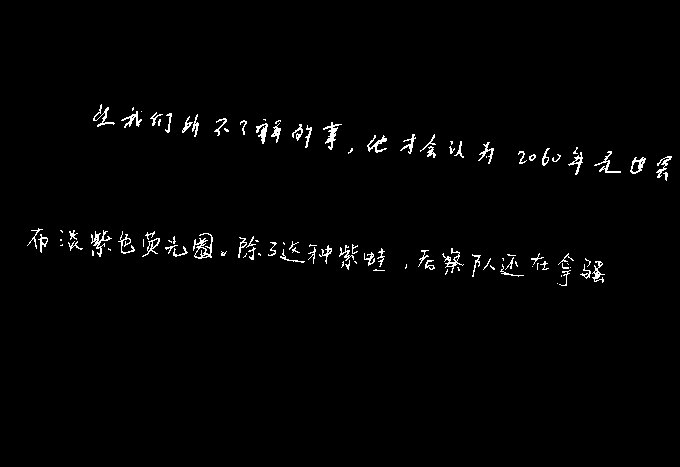 些我们所不了解的事,他才会认为2060年是世界
布淡紫色荧光圈。除了这种紫蛙,考察队还在拿骚